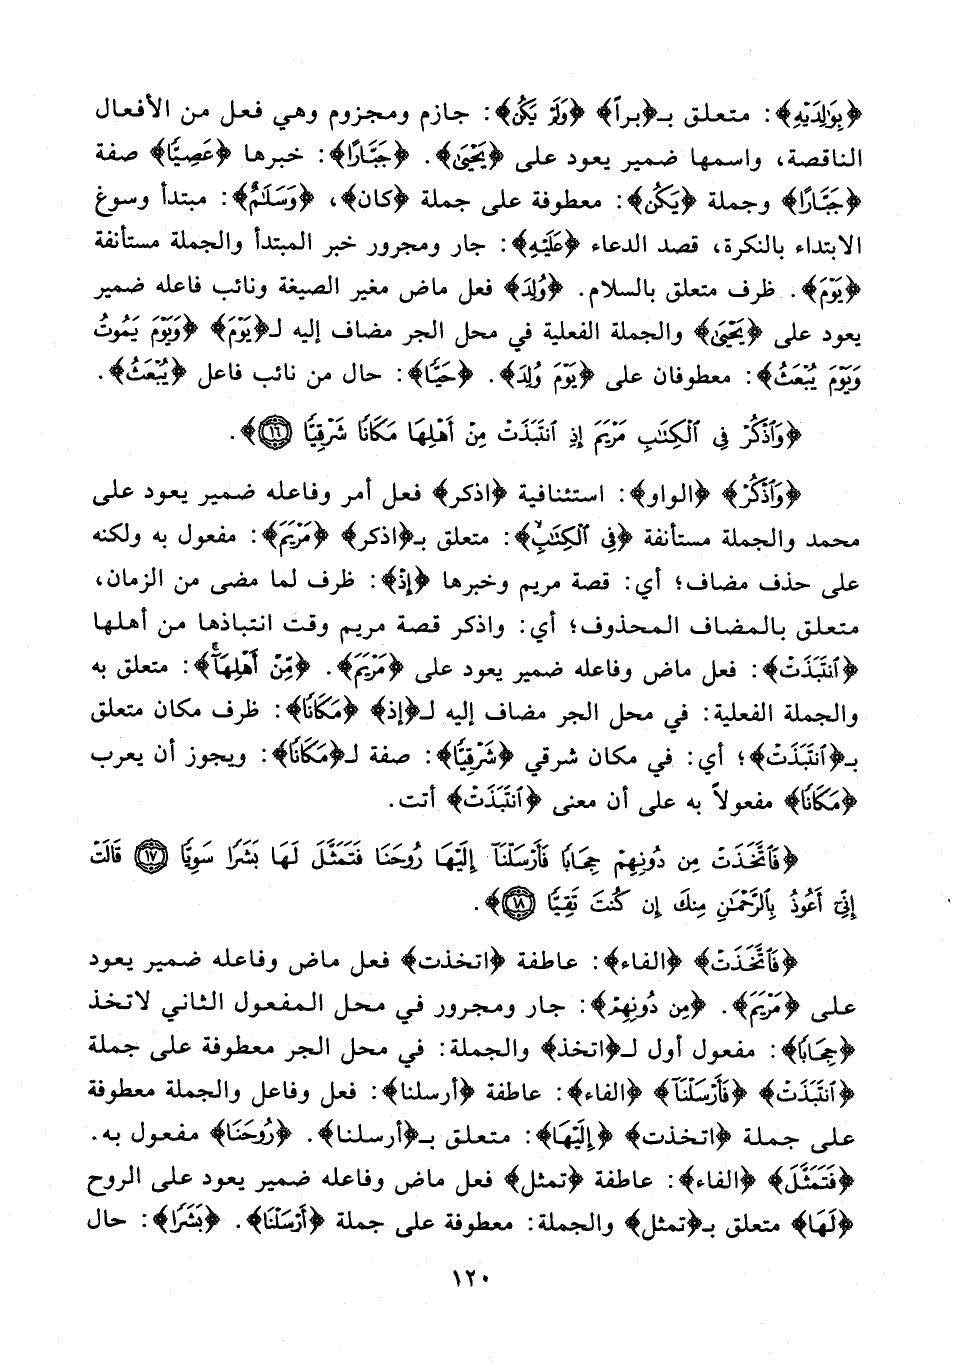 ﴿بِوَالِدَيْهِ﴾: متعلق بـ﴿براً﴾ ﴿وَلَمْ يَكُن﴾: جازم ومجزوم وهي فعل من الأفعال
الناقصة، واسمها ضمير يعود على ﴿يَحْيَىٰ﴾. ﴿جَبَّارًا﴾: خبرها ﴿عَصِيًّا﴾ صفة
﴿جَبَّارًا﴾ وجملة ﴿يَكُن﴾: معطوفة على جملة ﴿كان﴾، ﴿وَسَلَامٌ﴾: مبتدأ وسوغ
الابتداء بالنكرة، قصد الدعاء ﴿عَلَيْهِ﴾: جار ومجرور خبر المبتدأ والجملة مستأنفة
﴿يَوْمَ﴾. ظرف متعلق بالسلام. ﴿وُلِدَ﴾ فعل ماض مغير الصيغة ونائب فاعله ضمير
يعود على ﴿يَحْيَىٰ﴾ والجملة الفعلية في محل الجر مضاف إليه لـ﴿يَوْمَ﴾ ﴿وَيَوْمَ يَمُوتُ
وَيَوْمَ يُبْعَثُ﴾: معطوفان على ﴿يَوْمَ وُلِدَ﴾. ﴿حَيًّا﴾: حال من نائب فاعل ﴿يُبْعَثُ﴾.
﴿وَٱذْكُرْ فِي ٱلْكِتَٰبِ مَرْيَمَ إِذِ ٱنتَبَذَتْ مِنْ أَهْلِهَا مَكَانًا شَرْقِيًّا ١٦﴾.
﴿وَٱذْكُرْ﴾ ﴿الواو﴾: استئنافية ﴿اذكر﴾ فعل أمر وفاعله ضمير يعود على
محمد والجملة مستأنفة ﴿فِي ٱلْكِتَٰبِ﴾: متعلق بـ﴿اذكر﴾ ﴿مَرْيَمَ﴾: مفعول به ولكنه
على حذف مضاف؛ أي: قصة مريم وخبرها ﴿إِذْ﴾: ظرف لما مضى من الزمان،
متعلق بالمضاف المحذوف؛ أي: واذكر قصة مريم وقت انتباذها من أهلها
﴿ٱنتَبَذَتْ﴾: فعل ماض وفاعله ضمير يعود على ﴿مَرْيَمَ﴾. ﴿مِنْ أَهْلِهَا﴾: متعلق به
والجملة الفعلية: في محل الجر مضاف إليه لـ﴿إذ﴾ ﴿مَكَانًا﴾: ظرف مكان متعلق
بـ﴿ٱنتَبَذَتْ﴾؛ أي: في مكان شرقي ﴿شَرْقِيًّا﴾: صفة لـ﴿مَكَانًا﴾: ويجوز أن يعرب
﴿مَكَانًا﴾ مفعولاً به على أن معنى ﴿ٱنتَبَذَتْ﴾ أتت.
﴿فَٱتَّخَذَتْ مِن دُونِهِمْ حِجَابًا فَأَرْسَلْنَآ إِلَيْهَا رُوحَنَا فَتَمَثَّلَ لَهَا بَشَرًا سَوِيًّا ١٧ قَالَتْ
إِنِّيٓ أَعُوذُ بِٱلرَّحْمَٰنِ مِنكَ إِن كُنتَ تَقِيًّا ١٨﴾.
﴿فَٱتَّخَذَتْ﴾ ﴿الفاء﴾: عاطفة ﴿اتخذت﴾ فعل ماض وفاعله ضمير يعود
على ﴿مَرْيَمَ﴾. ﴿مِن دُونِهِمْ﴾: جار ومجرور في محل المفعول الثاني لاتخذ
﴿حِجَابًا﴾: مفعول أول لـ﴿اتخذ﴾ والجملة: في محل الجر معطوفة على جملة
﴿ٱنتَبَذَتْ﴾ ﴿فَأَرْسَلْنَآ﴾ ﴿الفاء﴾: عاطفة ﴿أرسلنا﴾: فعل وفاعل والجملة معطوفة
على جملة ﴿اتخذت﴾ ﴿إِلَيْهَا﴾: متعلق بـ﴿أرسلنا﴾. ﴿رُوحَنَا﴾ مفعول به.
﴿فَتَمَثَّلَ﴾ ﴿الفاء﴾: عاطفة ﴿تمثل﴾ فعل ماض وفاعله ضمير يعود على الروح
﴿لَهَا﴾ متعلق بـ﴿تمثل﴾ والجملة: معطوفة على جملة ﴿أَرْسَلْنَا﴾. ﴿بَشَرًا﴾: حال
١٢٠